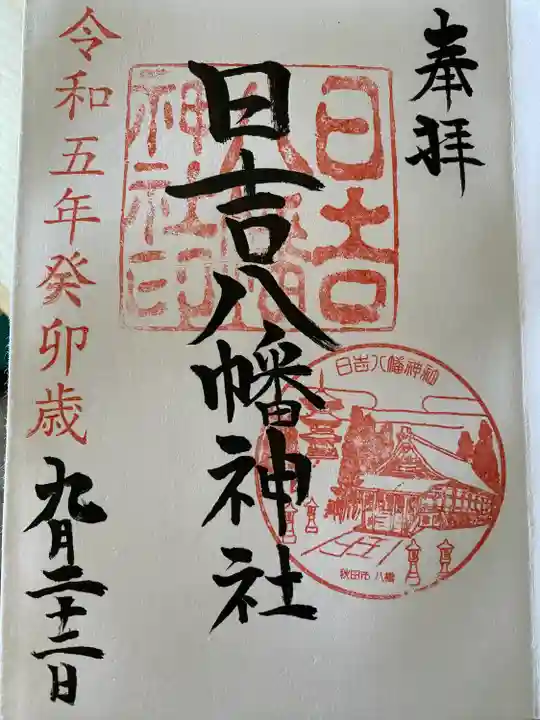 奉拝
日吉八幡神社
日吉
八幡
神社印
日吉八幡神社
秋田市 八幡
令和五年癸卯歳
九月二十二日